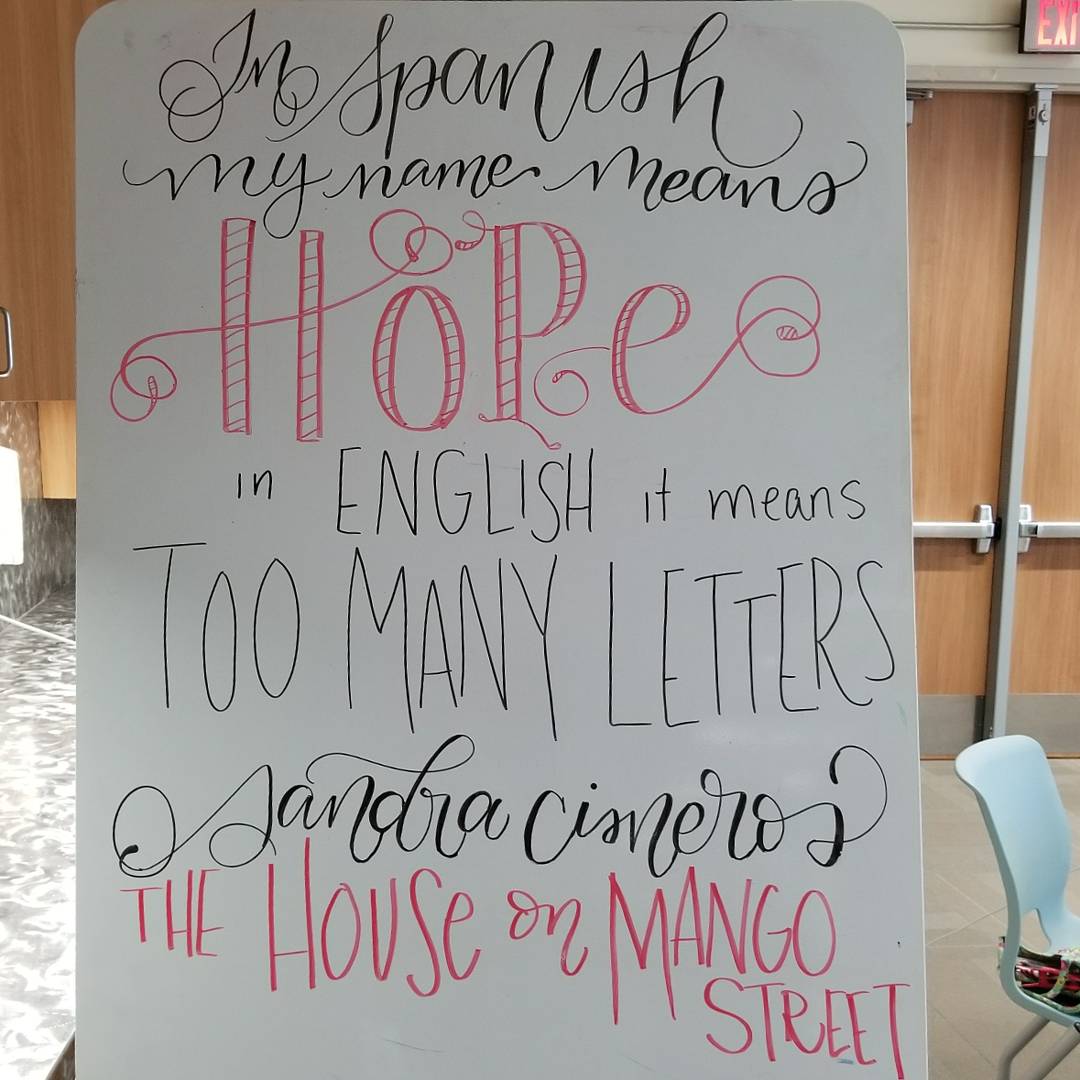 In Spanish
my name means
HOPe
in ENGLISH it means
TOO MANY LETTERS
Sandra Cisneros
THE HOUSe on MANGO
STREET
EXI